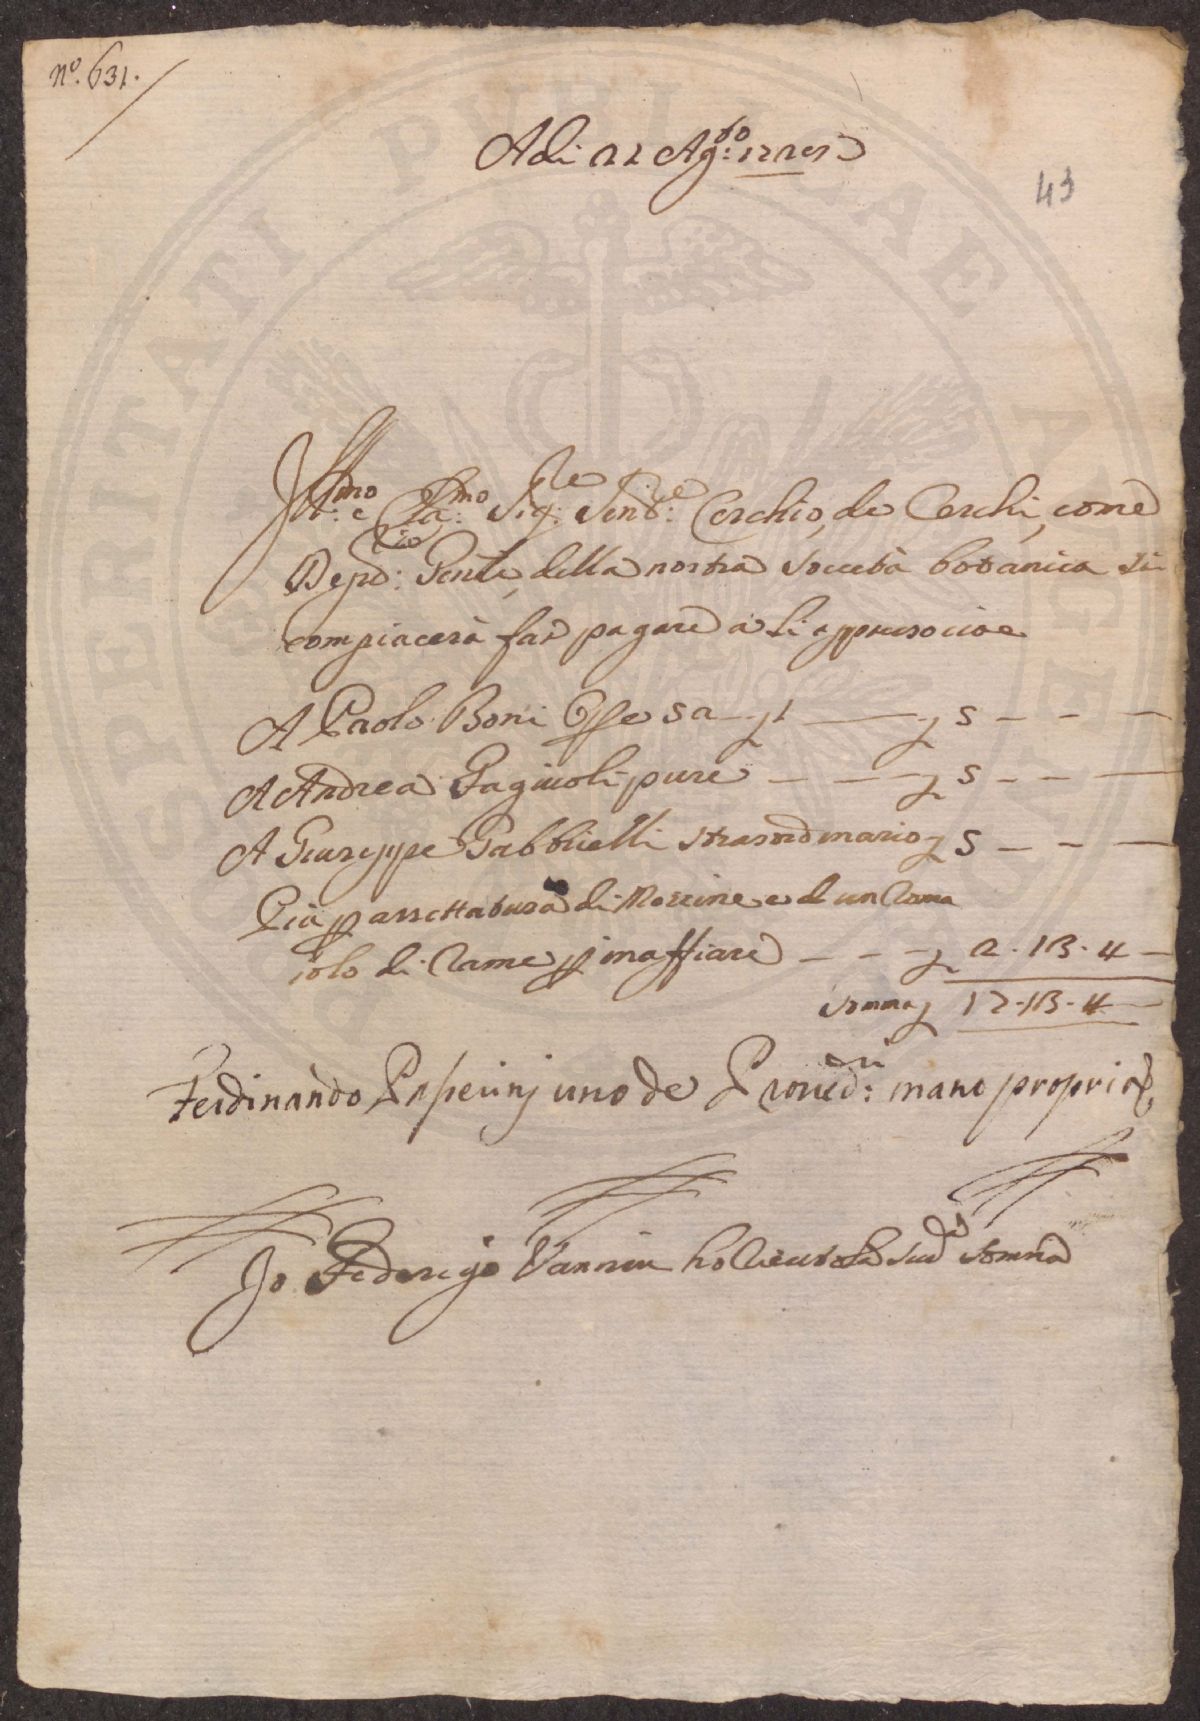 N.º 631.
Adi 22 Ag:to
43
Ill:mo e Cla:mo Sig:re Send:re Cerchio, de Cerchi, come
Dep: della nostra Società botanica si
compiacerà far pagare a li appresso cioe
A Paolo Boni Opre 5 a — — 5 — — —
A Andrea Fagiuoli pure — — — 5 — — —
A Giuseppe Gabbrielli straordinario 5 — — —
Più p assettatura di Mezzine e d un Rama
iolo di Rame p inaffiare — — — 2 . 13 . 4 —
Somma 17 . 13 . 4 —
Ferdinando uno de Proved:ri mano propria
Io Federigo Vannini ho riceuto la sud.a somma
SPERITATI PVBLICAE AVGE